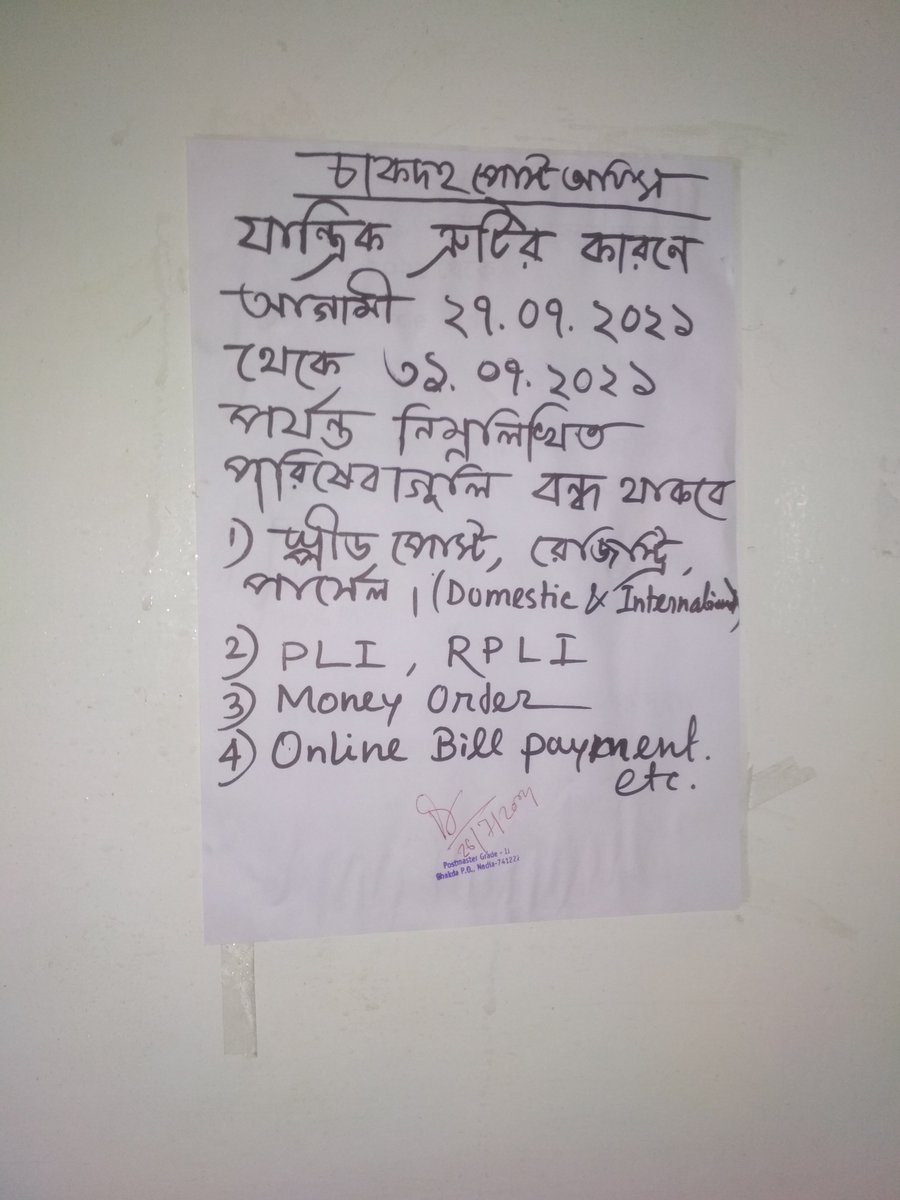 চাকদহ পোস্ট অফিস
যান্ত্রিক ত্রুটির কারনে
আগামী ২৭. ০৭. ২০২১
থেকে ৩১. ০৭. ২০২১
পর্যন্ত নিম্নলিখিত
পরিষেবাগুলি বন্ধ থাকবে
1) স্পীড পোস্ট, রেজিস্ট্রি,
পার্সেল। (Domestic & International)
2) PLI, RPLI
3) Money Order
4) Online Bill payment.
etc.
26/7/2021
Postmaster Grade - II
Chakda P.O., Nadia-741222